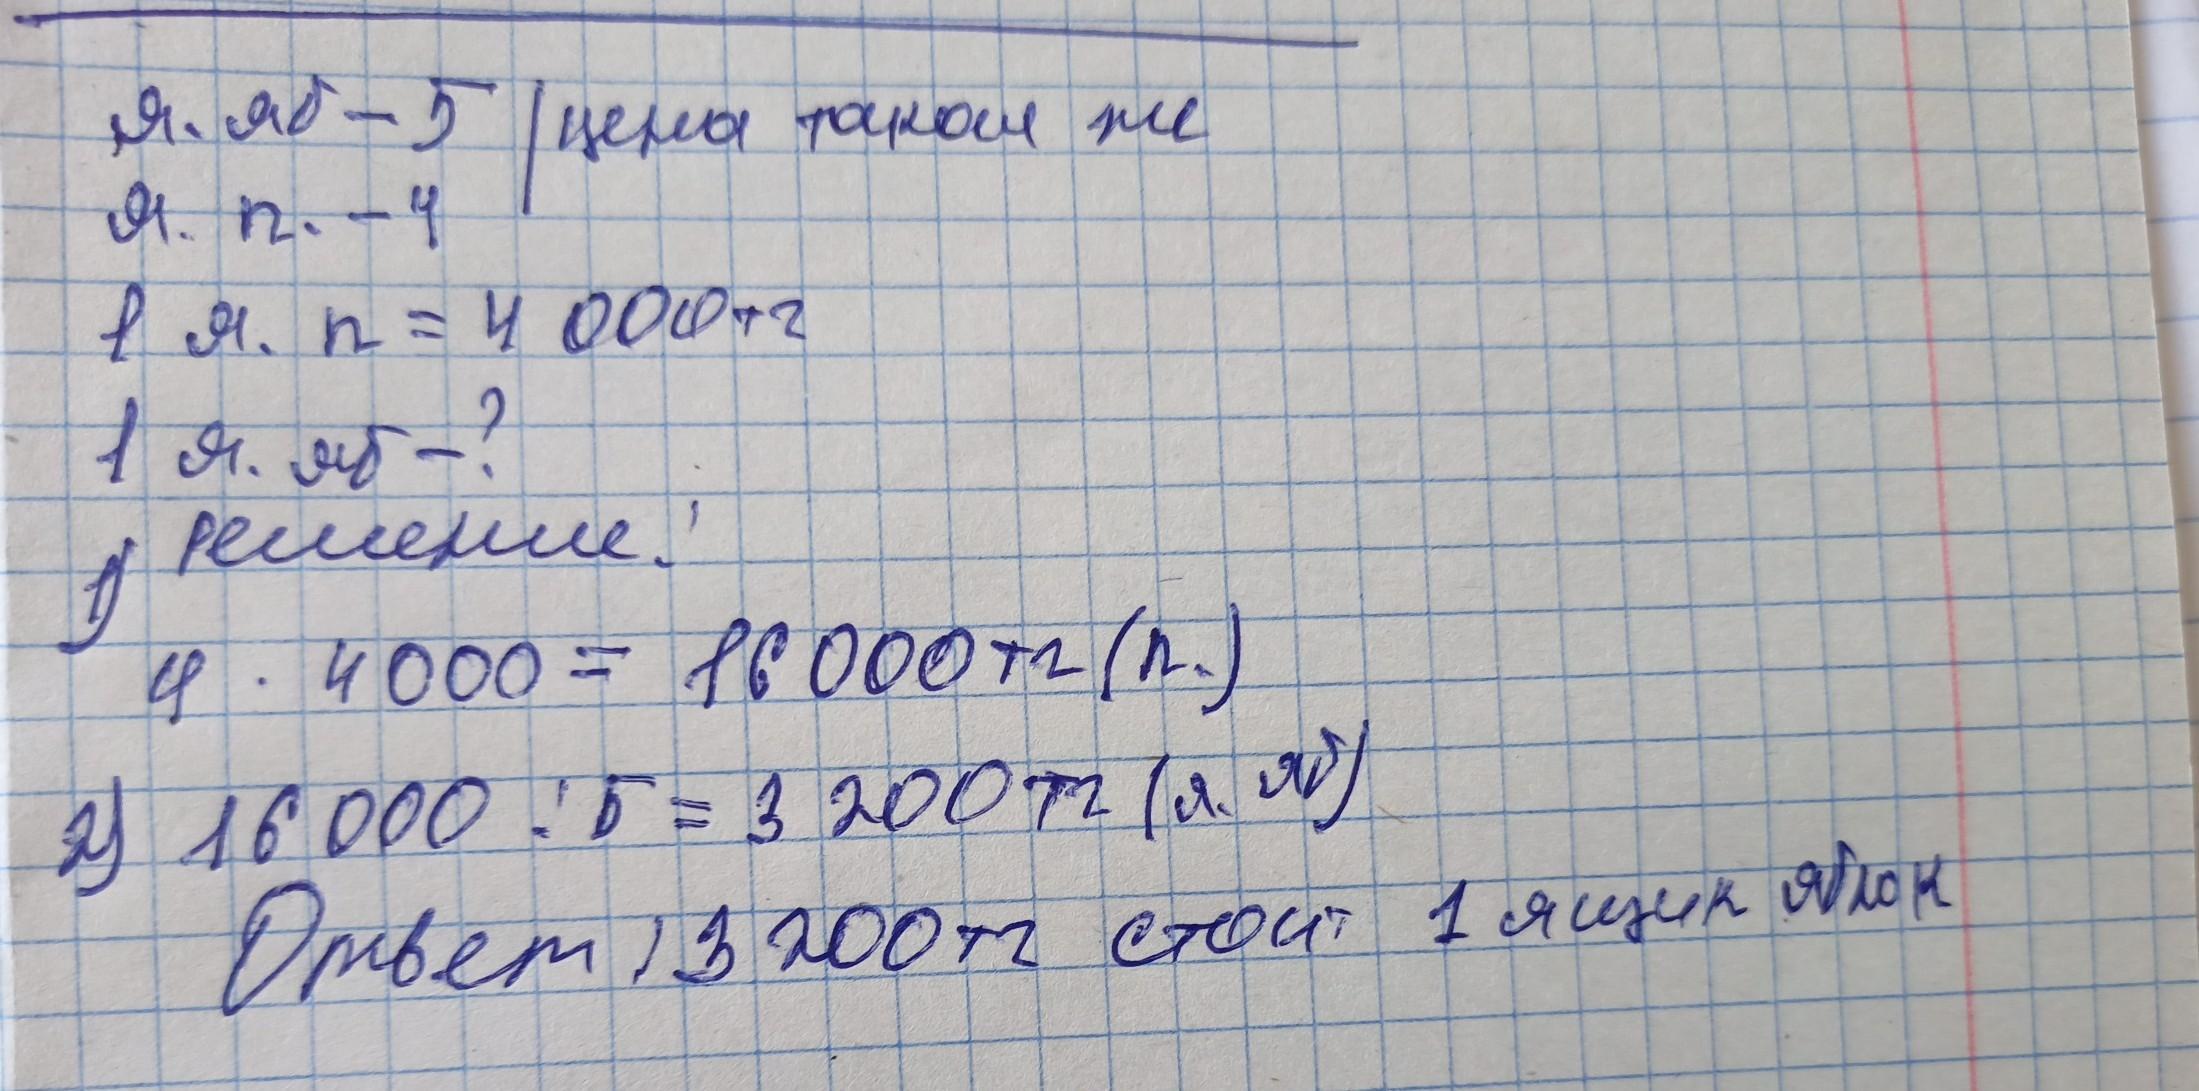 я. яб – 5 | цена такая же
я. п. – 4
1 я. п = 4 000 тг
1 я. яб – ?
решение:
1)
4 · 4000 = 16 000 тг (п.)
2) 16 000 : 5 = 3 200 тг (я. яб)
Ответ: 3 200 тг стоит 1 ящик яблок